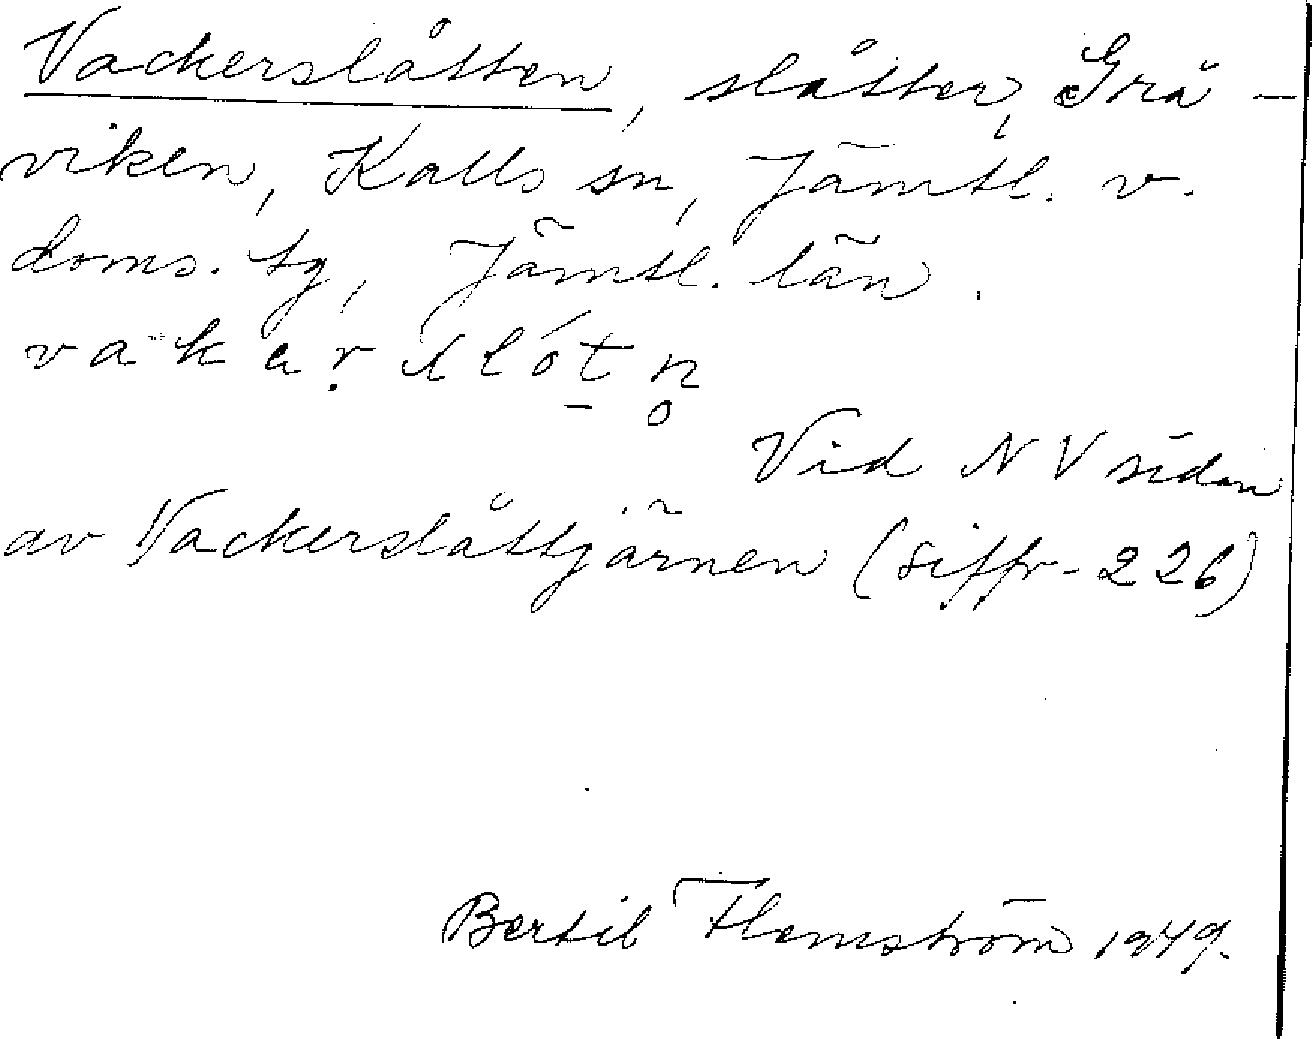 Vackerslåtten, slåtter, Grå-
viken, Kalls sn, Jämtl. v.
doms. tg, Jämtl. län.
vakaṛslót̠n̥
Vid NV sidan
av Vackerslåttjärnen (siffr- 226)
Bertil Flemström 1949.